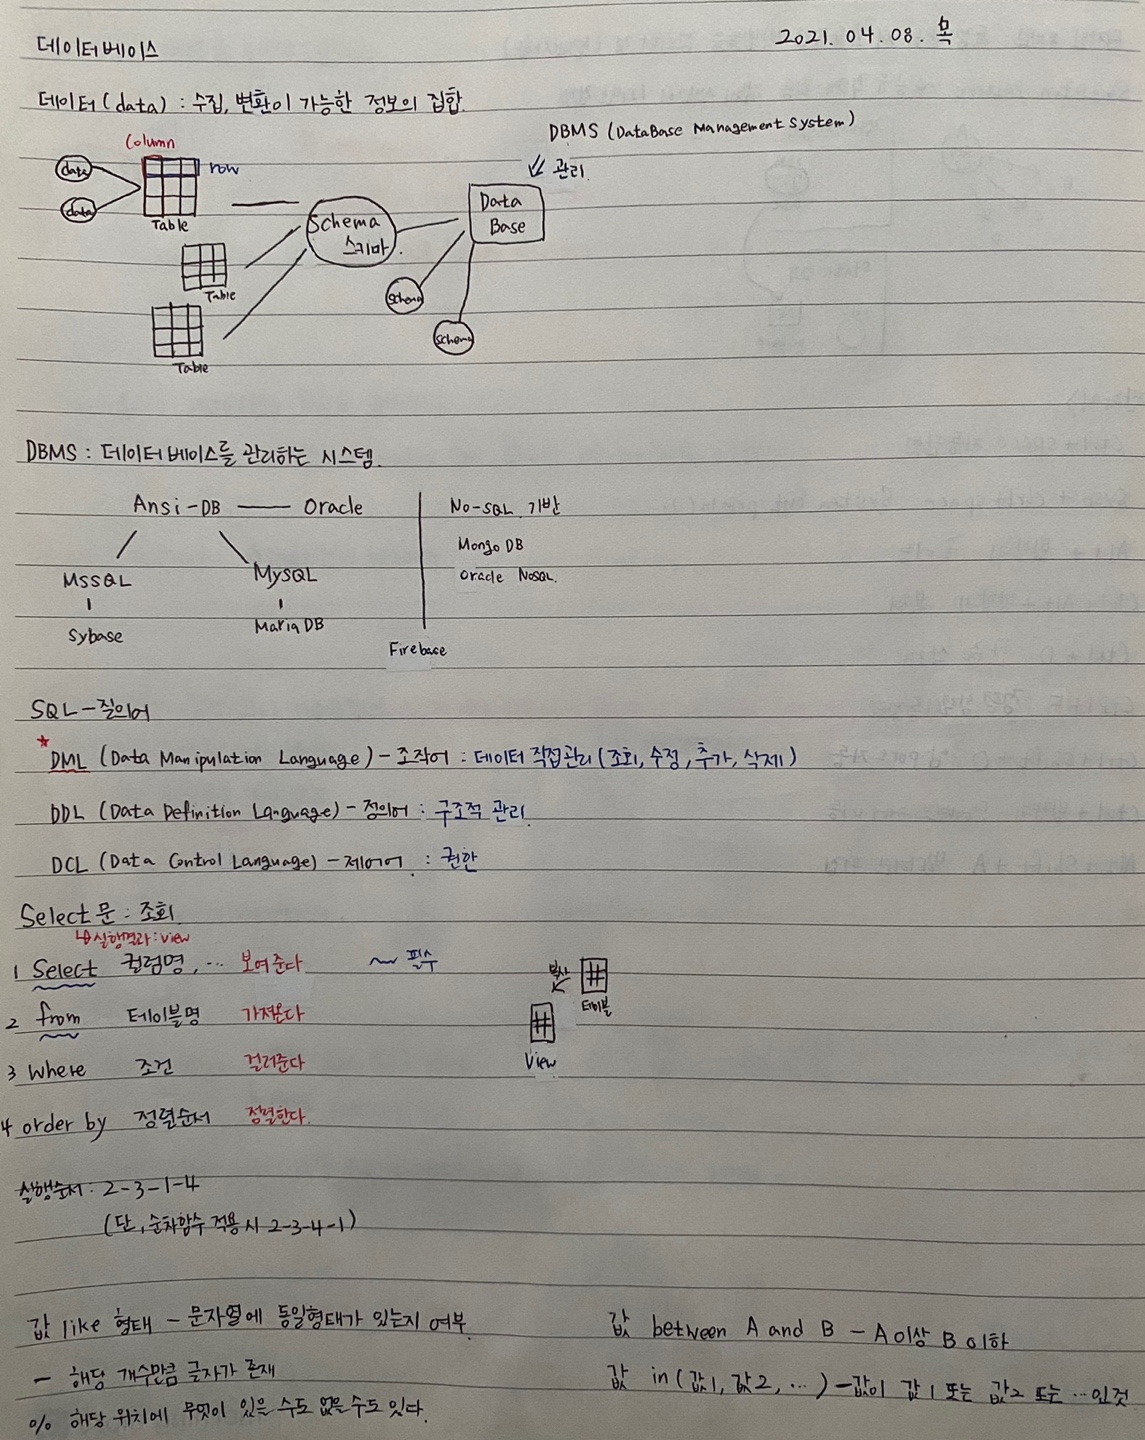 데이터베이스
2021. 04. 08. 목
데이터(data) : 수집, 변환이 가능한 정보의 집합.
DBMS (DataBase Management System)
관리.
Column
row
data
data
Table
Schema
스키마.
Data
Base
Table
Schema
Schema
Table
DBMS : 데이터베이스를 관리하는 시스템.
Ansi-DB — Oracle
No-SQL 기반
Mongo DB
Oracle NoSQL.
MSSQL
MySQL
Sybase
Maria DB
Firebase
SQL - 질의어
★DML (Data Manipulation Language) - 조작어 : 데이터 직접관리 (조회, 수정, 추가, 삭제)
DDL (Data Definition Language) - 정의어 : 구조적 관리.
DCL (Data Control Language) - 제어어 : 권한
Select 문 : 조회.
↳실행결과 : view
1 Select 컬럼명, ... 보여준다 ~ 필수
2 from 테이블명 가져온다
3 where 조건 걸러준다
4 order by 정렬순서 정렬한다.
복사
테이블
View
실행순서 : 2-3-1-4
(단, 순차함수 적용 시 2-3-4-1)
값 like 형태 - 문자열에 동일형태가 있는지 여부.
_ 해당 개수만큼 글자가 존재
% 해당 위치에 무엇이 있을 수도 없을 수도 있다.
값 between A and B - A이상 B이하
값 in (값1, 값2, ...) - 값이 값1 또는 값2 또는 ... 인것